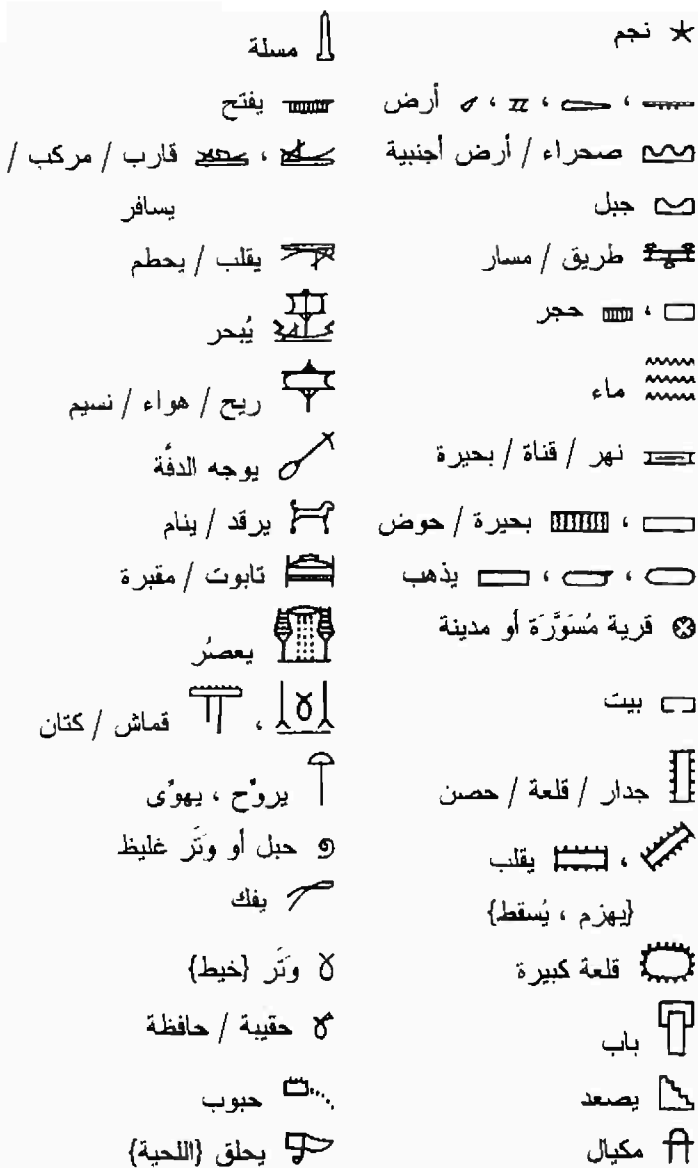 نجم
، ، ، أرض
صحراء / أرض أجنبية
جبل
طريق / مسار
، حجر
ماء
نهر / قناة / بحيرة
، بحيرة / حوض
، ، يذهب
قرية مُسَوَّرَة أو مدينة
بيت
جدار / قلعة / حصن
، يقلب
{يهزم ، يُسقط}
قلعة كبيرة
باب
يصعد
مكيال
مسلة
يفتح
، قارب / مركب /
يسافر
يقلب / يحطم
يُبحر
ريح / هواء / نسيم
يوجه الدفَّة
يرقد / ينام
تابوت / مقبرة
يعصُر
، قماش / كتان
يروَّح ، يهوَّى
حبل أو وَتَر غليظ
يفك
وَتَر {خيط}
حقيبة / حافظة
حبوب
يحلق {اللحية}